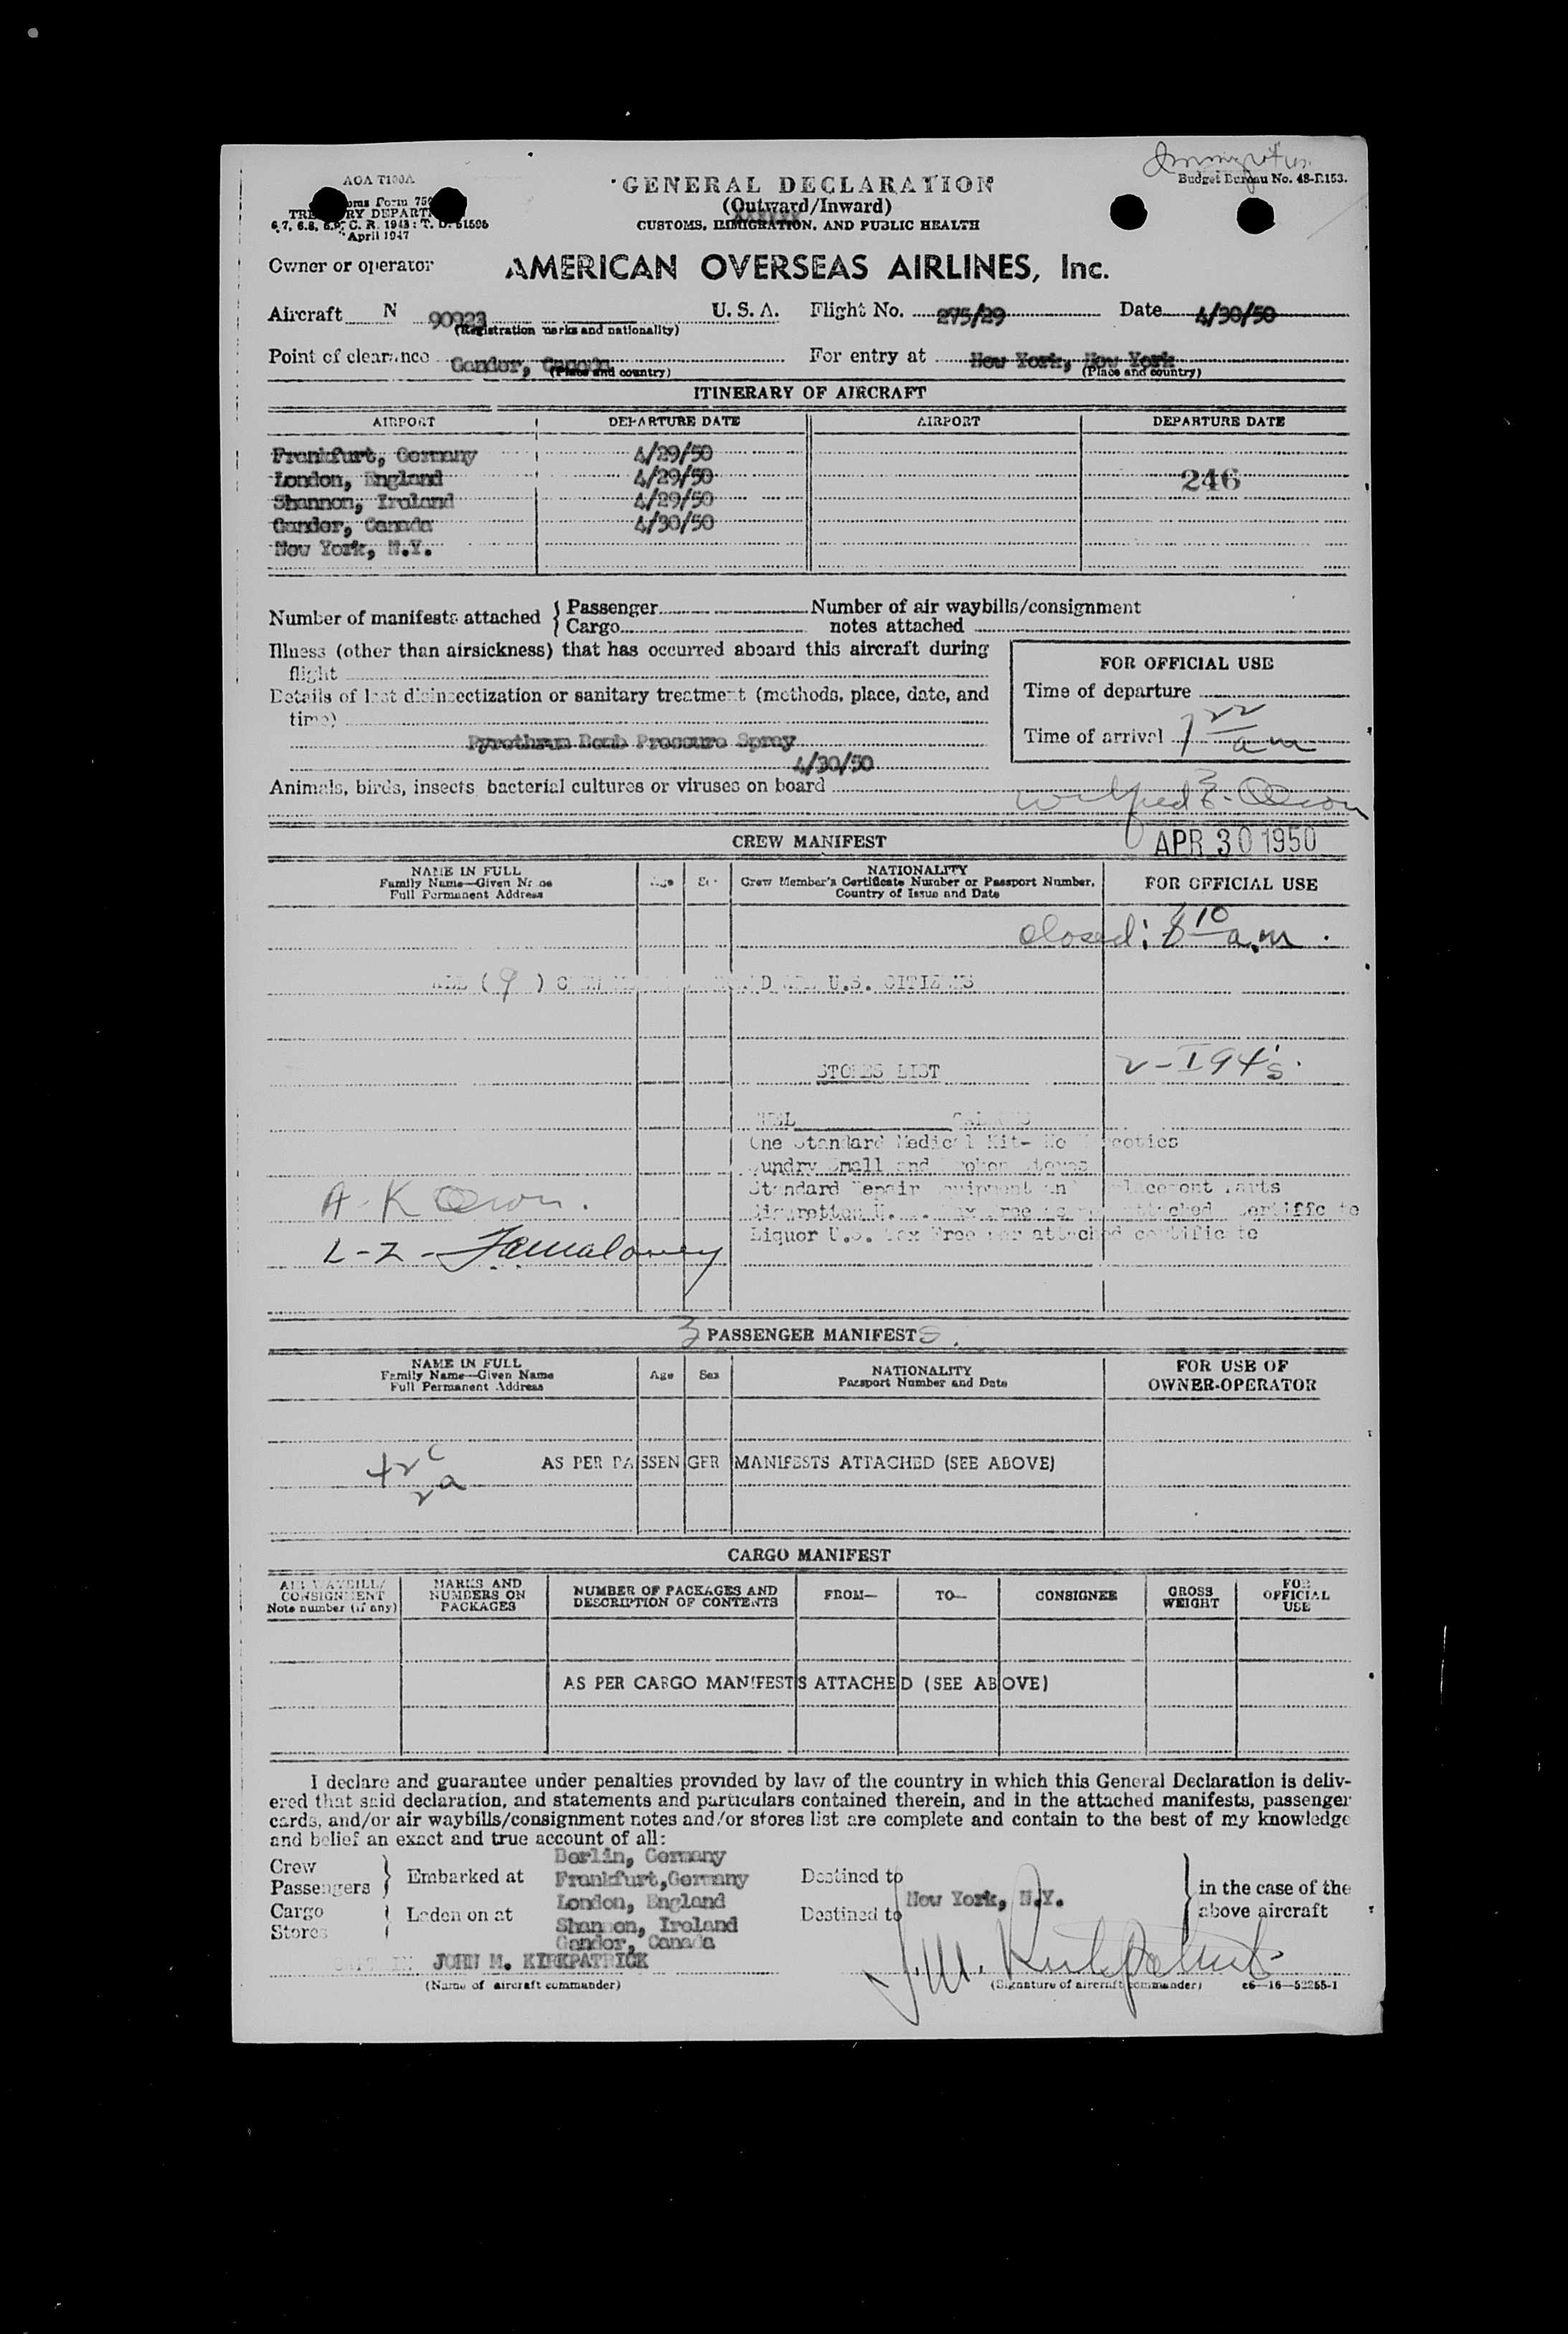 Immigration
AOA T100A
GENERAL DECLARATION
Budget Bureau No. 48-R153.
(Outward/Inward)
TREASURY DEPARTMENT
6.7, 6.8, C. R. 1943: T. D. 51595
April 1947
CUSTOMS, IMMIGRATION, AND PUBLIC HEALTH
Owner or operator AMERICAN OVERSEAS AIRLINES, Inc.
Aircraft N 90923 U. S. A. Flight No. 275/29 Date 4/30/50
(Registration marks and nationality)
Point of clearance Gander, Canada For entry at New York, New York
(Place and country) (Place and country)
ITINERARY OF AIRCRAFT
AIRPORT DEPARTURE DATE AIRPORT DEPARTURE DATE
Frankfurt, Germany 4/29/50
London, England 4/29/50 246
Shannon, Ireland 4/29/50
Gander, Canada 4/30/50
New York, N.Y.
Number of manifests attached { Passenger Number of air waybills/consignment
Cargo notes attached
Illness (other than airsickness) that has occurred aboard this aircraft during
flight
FOR OFFICIAL USE
Details of last disinsectization or sanitary treatment (methods, place, date, and
time)
Time of departure
Pyrethrum Bomb Pressure Spray
Time of arrival 7 22 am
4/30/50
Animals, birds, insects, bacterial cultures or viruses on board
CREW MANIFEST APR 30 1950
NAME IN FULL
Family Name—Given Name
Full Permanent Address
Age Sex
NATIONALITY
Crew Member's Certificate Number or Passport Number,
Country of Issue and Date
FOR OFFICIAL USE
closed: 8 10 a.m.
ALL (9) CREW U.S. CITIZENS
STORES LIST 2-I94's.
FUEL GALLONS
One Standard Medical Kit- No Narcotics
Sundry Small and Broken Stores
Standard Repair Equipment and Replacement Parts
Cigarettes U.S. Tax Free as per attached Certificate
Liquor U.S. Tax Free per attached certificate
3 PASSENGER MANIFESTS.
NAME IN FULL
Family Name—Given Name
Full Permanent Address
Age Sex
NATIONALITY
Passport Number and Date
FOR USE OF
OWNER-OPERATOR
42 c
2 a
AS PER PASSENGER MANIFESTS ATTACHED (SEE ABOVE)
CARGO MANIFEST
AIR WAYBILL/
CONSIGNMENT
Note number (if any)
MARKS AND
NUMBERS ON
PACKAGES
NUMBER OF PACKAGES AND
DESCRIPTION OF CONTENTS
FROM— TO— CONSIGNEE
GROSS
WEIGHT
FOR
OFFICIAL
USE
AS PER CARGO MANIFESTS ATTACHED (SEE ABOVE)
I declare and guarantee under penalties provided by law of the country in which this General Declaration is deliv-
ered that said declaration, and statements and particulars contained therein, and in the attached manifests, passenger
cards, and/or air waybills/consignment notes and/or stores list are complete and contain to the best of my knowledge
and belief an exact and true account of all:
Crew
Passengers } Embarked at
Cargo
Stores } Laden on at
Berlin, Germany
Frankfurt,Germany
London, England
Shannon, Ireland
Gander, Canada
Destined to
Destined to
New York, N.Y.
in the case of the
above aircraft
CAPTAIN JOHN M. KIRKPATRICK J.M. Kirkpatrick
(Name of aircraft commander) (Signature of aircraft commander) c6—16—52255-1